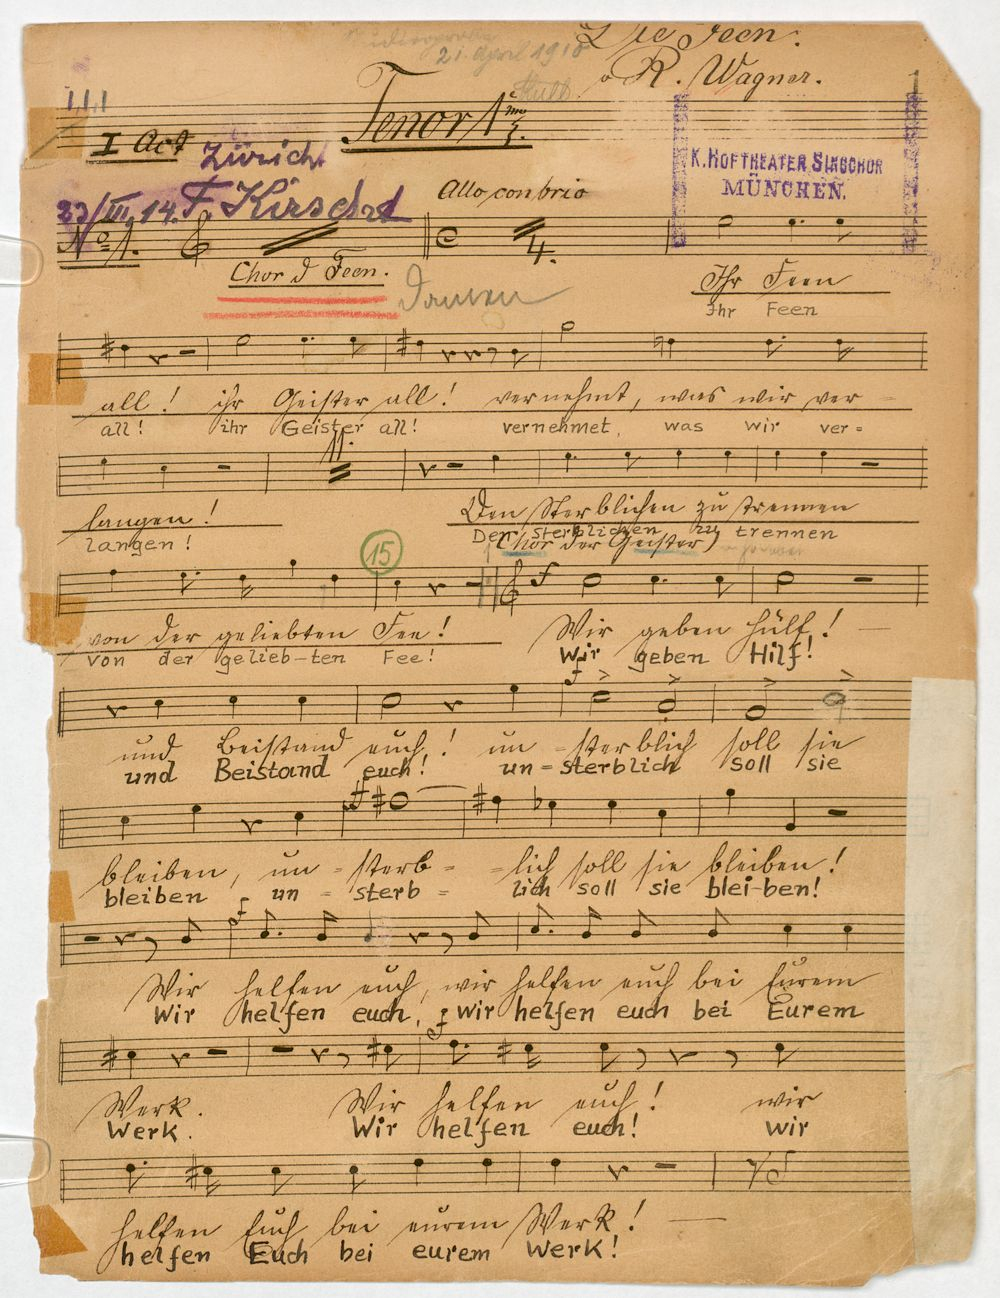 21. April 1910
Die Feen.
v R. Wagner.
Tenor 1mo
I.
I Act
Zürich
K. HOFTHEATER SINGCHOR
MÜNCHEN.
Allo con brio
23/III. 14. F. Kirschst
No 1.
4.
Chor d Feen.
Damen
Ihr Feen
Ihr Feen
all! ihr Geister all! vernehmt, was wir ver-
all! ihr Geister all! vernehmet, was wir ver-
11.
langen! Den Sterblichen zu trennen
langen! Den sterblichen zu trennen
(Chor der Geister)
15
f
von der geliebten Fee! Wir geben Hülf!
von der gelieb-ten Fee! Wir geben Hilf!
f
und Beistand euch! un-sterblich soll sie
und Beistand euch! un-sterblich soll sie
ff
bleiben, un-sterb--lich soll sie bleiben!
bleiben un-sterb-lich soll sie blei-ben!
f
Wir helfen euch, wir helfen euch bei Eurem
Wir helfen euch, wir helfen euch bei Eurem
f
Werk. Wir helfen euch! wir
Werk. Wir helfen euch! wir
helfen Euch bei eurem Werk!
helfen Euch bei eurem Werk!